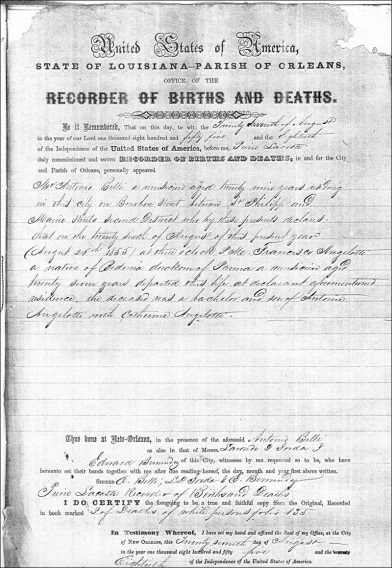 United States of America,
STATE OF LOUISIANA-PARISH OF ORLEANS,
OFFICE OF THE
RECORDER OF BIRTHS AND DEATHS.
Be it Remembered, That on this day, to wit: the Twenty seventh of August
in the year of our Lord one thousand eight hundred and fifty five and the Eightieth
of the Independence of the United States of America, before me,
duly commissioned and sworn RECORDER OF BIRTHS AND DEATHS, in and for the City
and Parish of Orleans, personally appeared
Mr Antonio Bello a musician aged twenty nine years residing
in this city on Burbon street between St Philipp and
Maine Streets Second District who by these presents declares
that on the twenty sixth of August of this present year
(August 26th 1855) at three o'clock P.M. Francisco Angelotte
a native of dukedom of Parma a musician aged
twenty seven years departed this life at declarant aforementioned
residence, the deceased was a bachelor and son of Antonio
Angelotte with Catherine Angelotte.
Thus done at New-Orleans, in the presence of the aforesaid Antonio Bello
as also in that of Messrs.
Edward of this City, witnesses by me requested so to be, who have
hereunto set their hands together with me after due reading hereof, the day, month and year first above written.
SIGNED
Recorder of Births and Deaths
I DO CERTIFY the foregoing to be a true and faithful copy from the Original, Recorded
in book marked of Deaths of white persons folio 135
In Testimony Whereof, I have set my hand and affixed the Seal of my Office, at the City
of NEW ORLEANS, this Twenty seventh day of August
in the year one thousand eight hundred and fifty five and the
Eightieth of the Independence of the United States of America.